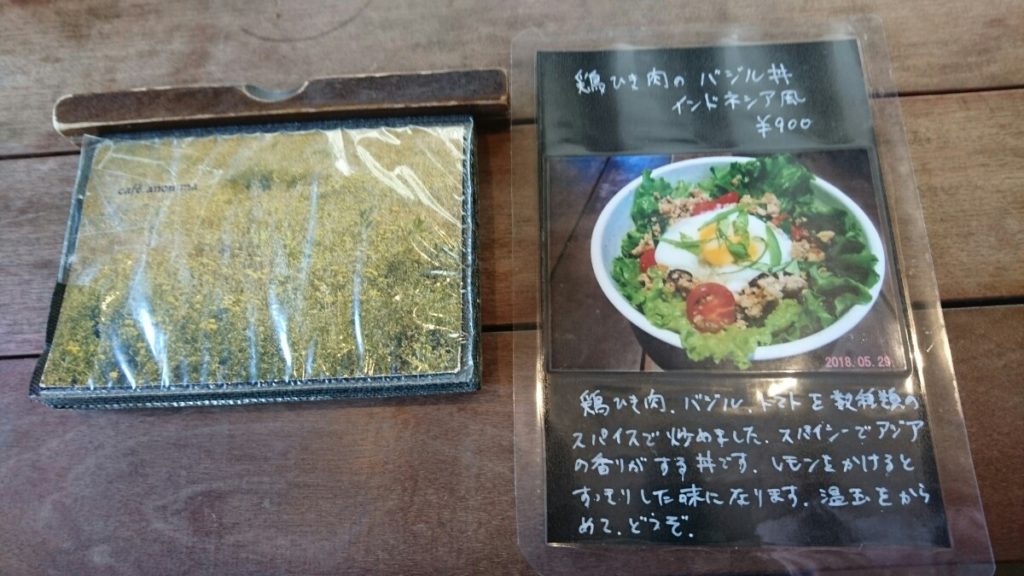 café anonima
鶏ひき肉の バジル丼
インドネシア風
¥900
2018.05.29
鶏ひき肉、バジル、トマトを数種類の
スパイスで炒めました。スパイシーでアジア
の香りがする丼です。レモンをかけると
すっきりした味になります。温玉をから
めて、どうぞ。